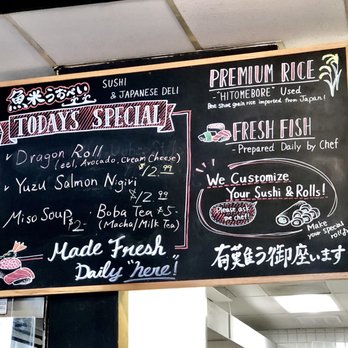 SUSHI
& JAPANESE DELI
TODAYS SPECIAL
✓ Dragon Roll
(eel, Avocado, Cream Cheese)
$12.99
✓ Yuzu Salmon Nigiri
$12.99
Miso Soup $2
• Boba Tea $5-
(Macha/Milk Tea)
Made Fresh
Daily "here"!
PREMIUM RICE
- "HITOMEBORE" Used
Best short grain rice imported from Japan!
FRESH FISH
- Prepared Daily by Chef
We Customize
Your Sushi & Rolls!
Please ask
the chef!
Make
your special
roll♪
有難う御座います